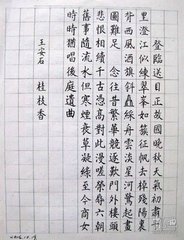 登臨送目正故國晚秋天氣初肅千
里澄江似練翠峯如簇征帆去棹殘陽裏
背西風酒旗斜矗綵舟雲淡星河鷺起畫
圖難足 念往昔繁華競逐歎門外樓頭
悲恨相續千古憑高對此漫嗟榮辱六朝
舊事隨流水但寒煙衰草凝綠至今商女
時時猶唱後庭遺曲
桂枝香
王安石